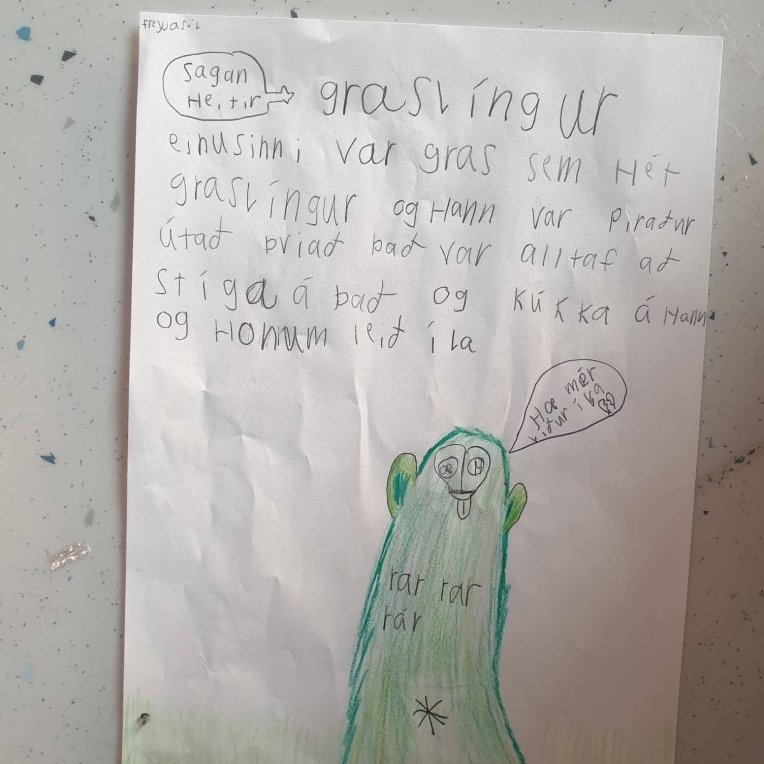 freyjasól
Sagan
Heitir
graslíngur
einusinni var gras sem Hét
graslíngur og Hann var piradur
útad þvíad það var alltaf ad
stíga á það og kúkka á Hann
og Honum leid íla
Hæ mér
lídur íla
æ H
rar rar
rár